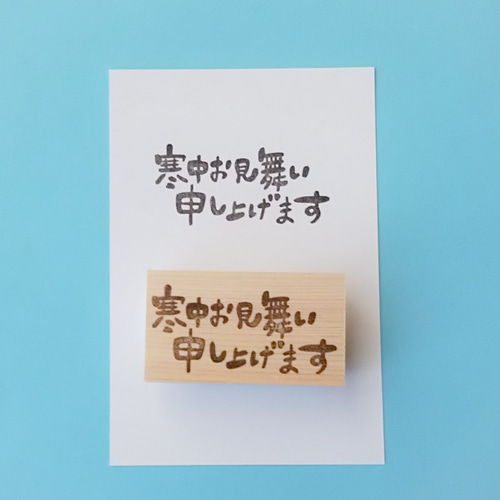 寒中お見舞い
申し上げます
寒中お見舞い
申し上げます